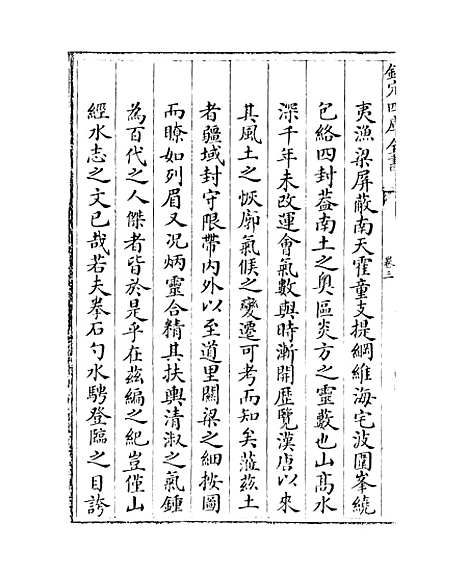 欽定四庫全書
卷三
夷漁梁屏蔽南天霍童支提綱維海宅波圍峯繞
包絡四封葢南土之奥區炎方之靈藪也山髙水
深千年未改運會氣數與時漸開歴覽漢唐以來
其風土之恢廓氣候之變遷可考而知矣蒞兹土
者疆域封守限帶内外以至道里闗梁之細按圖
而瞭如列眉又况炳靈合精其扶輿清淑之氣鍾
為百代之人傑者皆於是乎在兹編之紀豈僅山
經水志之文已哉若夫拳石勺水騁登臨之目誇